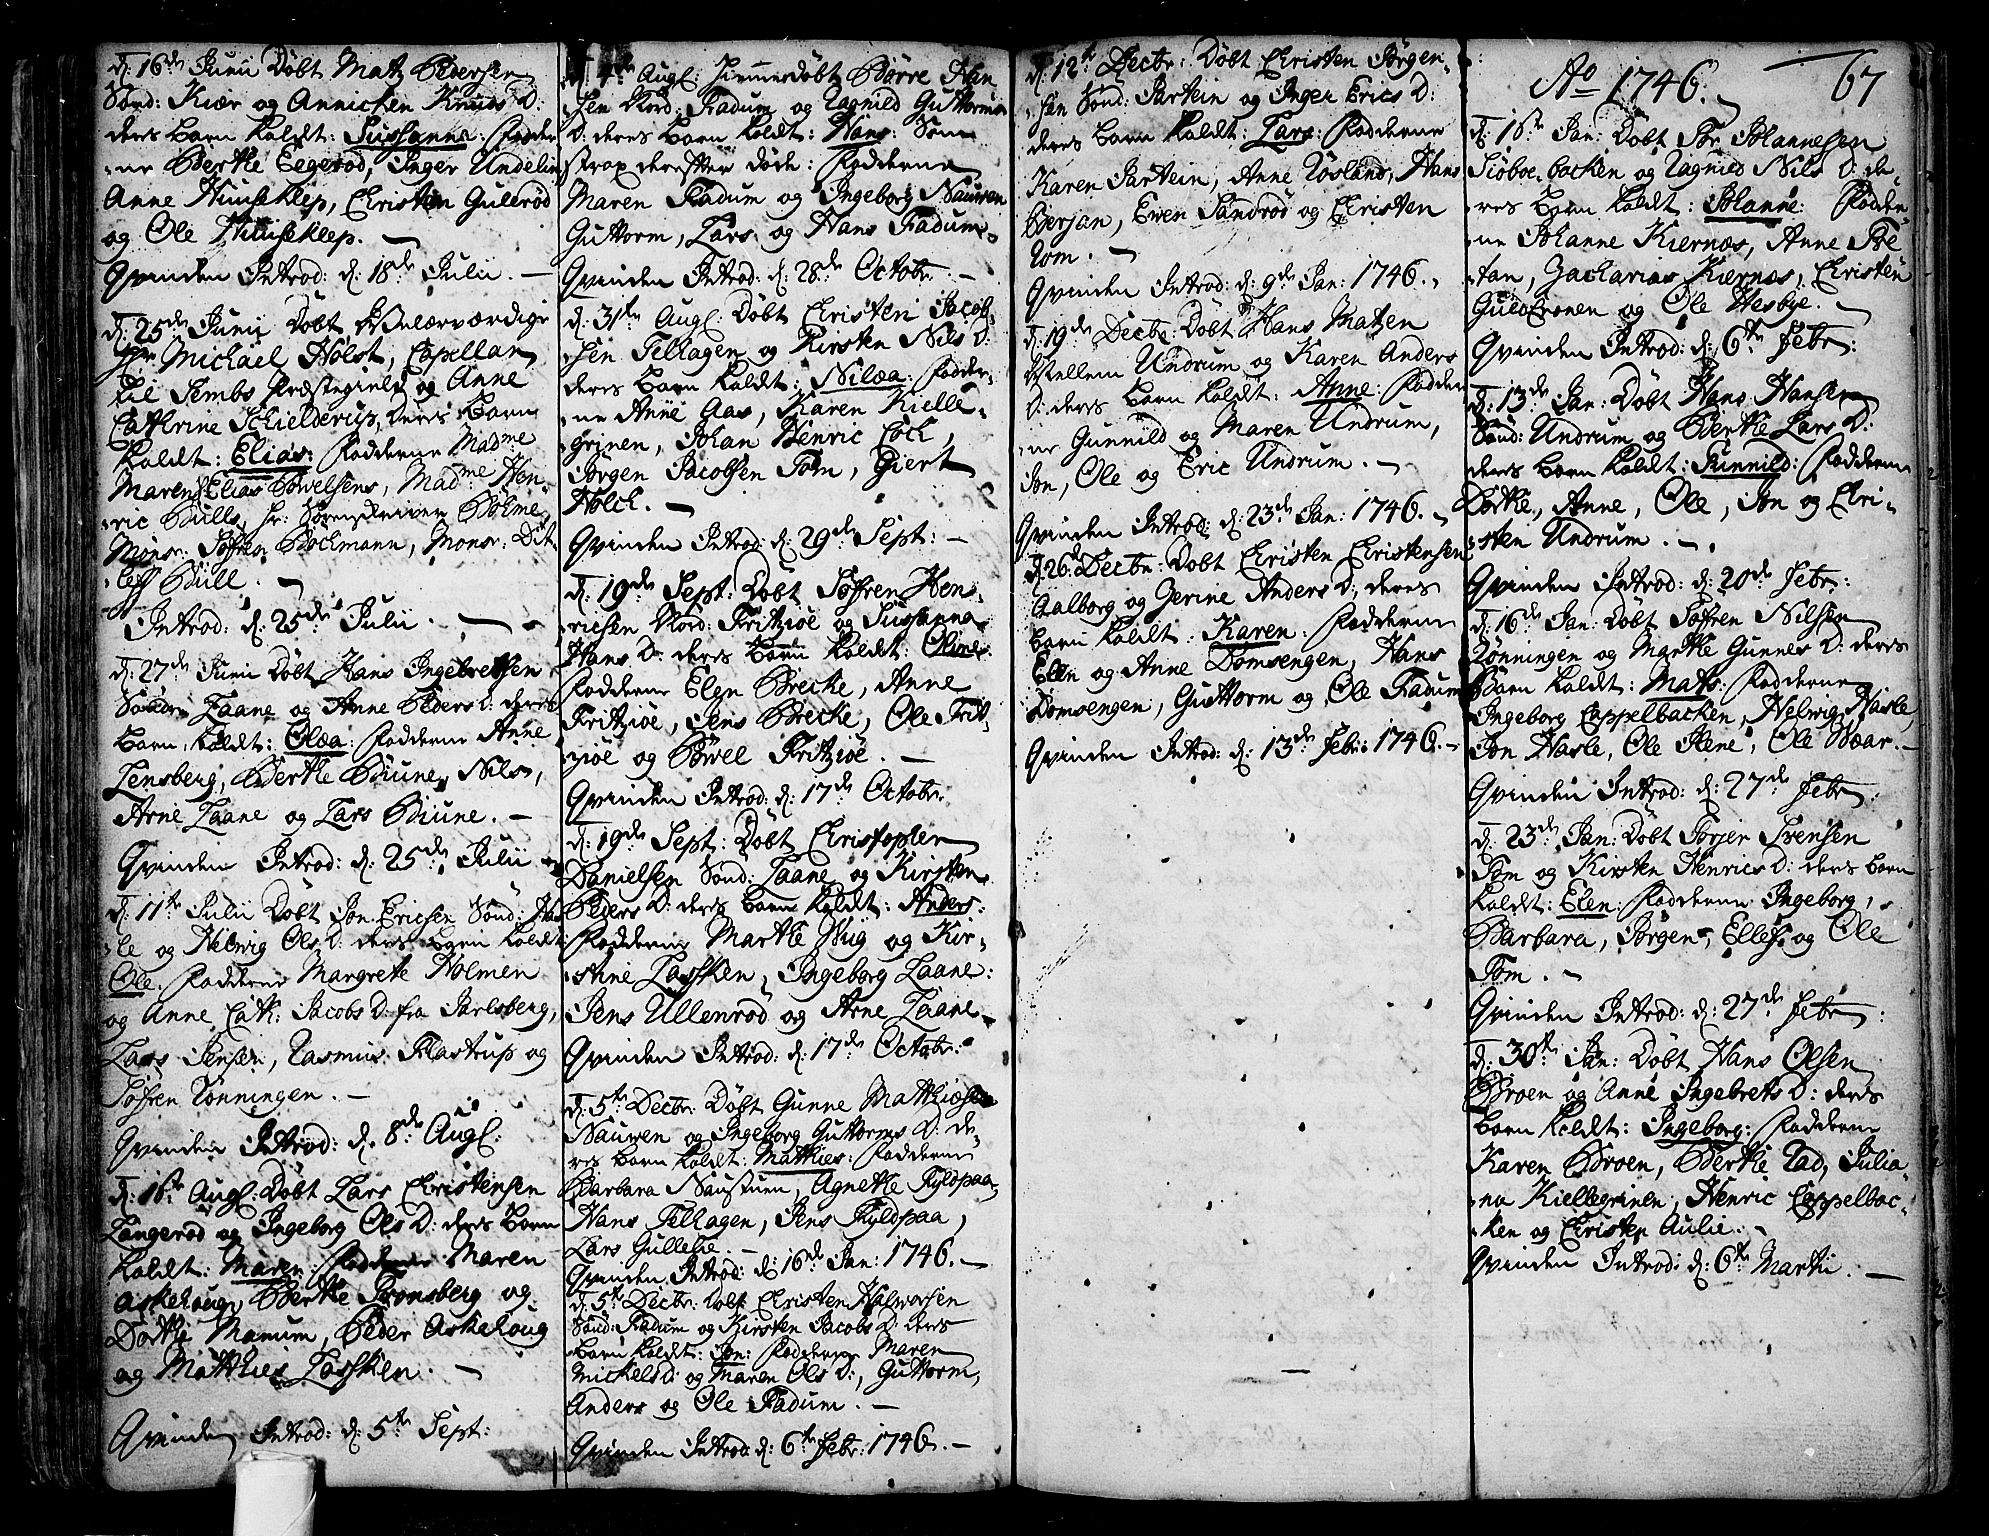 d: 16de Junii Døbt Matz Pedersen
Sönd: Kiær og Annichen Knuds D:
deres barn kaldt: Sussanna: Fadder-
ne Berthe Eegerød, Inger Undelin
Anne Huuseklep, Christen Gullerød
og Ole Huuseklep. —
Qvinden Introd: d: 18de Julii. —
d: 25de Junii Døbt Velærværdige
Hr: Michael Holst, Capellan
til Sembs Præstegield og Anne
Cathrine Schielderup, deres barn
kaldt: Elias: Fadderne Madme
Maren Elias Bowelsens, Madme Hen-
ric Bulls, Hr: Sorenskriver Bøhme,
Monsr: Søfren Bochmann, Monsr: Dit-
lef Bull. —
Introd: d: 25de Julii. —
d: 27de Junii Døbt Hans Ingebretsen
Söndre Laane og Anne Peders D: deres
barn kaldt: Olæa: Fadderne Anne
Lensberg, Berthe Biune, Nils,
Arne Laane og Lars Biune. —
Qvinden Introd: d: 25de Julii
d: 11te Julii Døbt Jon Ericsen Sönd: Has-
le og Helwig Ols D: deres barn kaldt
Ole. Fadderne Margrete Holmen
og Anne Cath: Jacobs D: fra Jarlsberg,
Lars Jensen, Rasmus Flastrup og
Søfren Rønningen. —
Qvinden Introd: d: 8de Augl:
d: 16te Augl: Døbt Lars Christensen
Langerød og Ingeborg Ols D: deres barn
kaldt: Maren: Fadderne Maren
Askehoug, Berthe Tronsberg og
Dorthe Manum, Peder Askehoug
og Matthies Lassken. —
Qvinden Introd: d: 5te Sept:
Augl: Hiemmedøbt Børre Han-
sen Nord: Fadum og Ragnild Guttorms
D: deres barn kaldt: Hans: Som
strax derefter døde: Fadderne
Maren Fadum og Ingeborg Nauwen
Guttorm, Lars og Hans Fadum.
Qvinden Introd: d: 28de Octobr: —
d: 31te Augl: Døbt Christen Jacob-
sen Tellagen og Kirsten Nils D:
deres barn kaldt: Nilæa: Fadder-
ne Anne Aas, Karen Kielle-
grinen, Johan Henric Coch,
Jørgen Jacobsen Tom, Giert
Holck. —
Qvinden Introd: d: 29de Sept: —
d: 19de Sept: Døbt Søfren Hen-
richsen Nord: Fritzöe og Sussanna
Hans D: deres barn kaldt: Oline.
Fadderne Elen Brecke, Anne
Fritzöe, Jens Brecke, Ole Frit-
zöe og Bowel Fritzöe. —
Qvinden Introd: d: 17de Octobr:
d: 19de Sept: Døbt Christopher
Danielsen Sönd: Laane og Kirsten
Peders D: deres barn kaldt: Anders:
Fadderne Marthe Wiig og Kir-
stine Lassken, Ingeborg Laane:
Jens Ullenrød og Arne Laane.
Qvinden Introd: d: 17de Octobr:
d: 5te Decbr: Døbt Gunne Matthiesen
Nauwen og Ingeborg Guttorms D: de-
res barn kaldt: Matthies: Fadderne
Barbara Naustuen, Agnethe Fyldpaa,
Hans Tellagen, Jens Fyldpaa,
Lars Gullelie. —
Qvinden Introd: d: 16de Jan: 1746. —
d: 5te Decbr: Døbt Christen Halworsen
Sönd: Fadum og Kirsten Jacobs D: deres
barn kaldt: Jon: Fadderne Maren
Mickels D: og Maren Ols D:, Guttorm,
Anders og Ole Fadum. —
Qvinden Introd: d: 6te Febr: 1746. —
d: 12te Decbr: Døbt Christen Jörgen-
sen Sönd: Jartein og Inger Erics D:
deres barn kaldt: Lars: Fadderne
Karen Jartein, Anne Røsland, Hans
Berjan, Ewen Sandrød og Christen
Rom. —
Qvinden Introd: d: 9de Jan: 1746.
d: 19de Decbr: Døbt Hans Matzen
Mellem Undrum og Karen Anders
D: deres barn kaldt: Anne: Fadder-
ne Gunnild og Maren Undrum,
Jon, Ole og Eric Undrum. —
Qvinden Introd: d: 23de Jan: 1746.
d: 26de Decbr: Døbt Christen Christensen
Aalborg og Zerine Anders D: deres
barn kaldt: Karen: Fadderne
Elen og Anne Domsengen, Hans
Domsengen, Guttorm og Ole Fadum
Qvinden Introd: d: 13de Febr: 1746.
67
Ao 1746.
d: 16te Jan: Døbt Johannesen
Siöboe-backen og Ragnild Nils D: de-
res barn kaldt: Johanne: Fadder-
ne Johanne Kiernæs, Anne
Zacharias Kiernæs, Christen
Guldkronen og Ole Hesbye. —
Qvinden Introd: d: 6te Febr:
d: 13de Jan: Døbt Hans Hansen
Sönd: Undrum og Berthe Lars D:
deres barn kaldt: Gunnild: Fadderne
Dorthe, Anne, Ole, Jon og Chri-
sten Undrum. —
Qvinden Introd: d: 20de Febr:
d: 16de Jan: Døbt Søfren Nilsen
Rønningen og Marthe Gunnes D: deres
Barn kaldt: Mats: Fadderne
Ingeborg Cappelbacken, Helwig Hasle,
Jon Hasle, Ole Ilene, Ole Waar. —
Qvinden Introd: d: 27de Febr:
d: 23de Jan: Døbt Torjer Iwensen
Tom og Kirsten Henrics D: deres barn
kaldt: Elen: Fadderne Ingeborg,
Barbara, Jørgen, Ellef og Ole
Tom. —
Qvinden Introd: d: 27de Febr:
d: 30te Jan: Døbt Hans Olsen
Broen og Anne Ingebrets D: deres
barn kaldt: Ingeborg: Fadderne
Karen Broen, Berthe Rad, Julia-
na Kiellegrinen, Henric Cappelbac-
ken og Christen Aulie. —
Qvinden Introd: d: 6te Martii. —